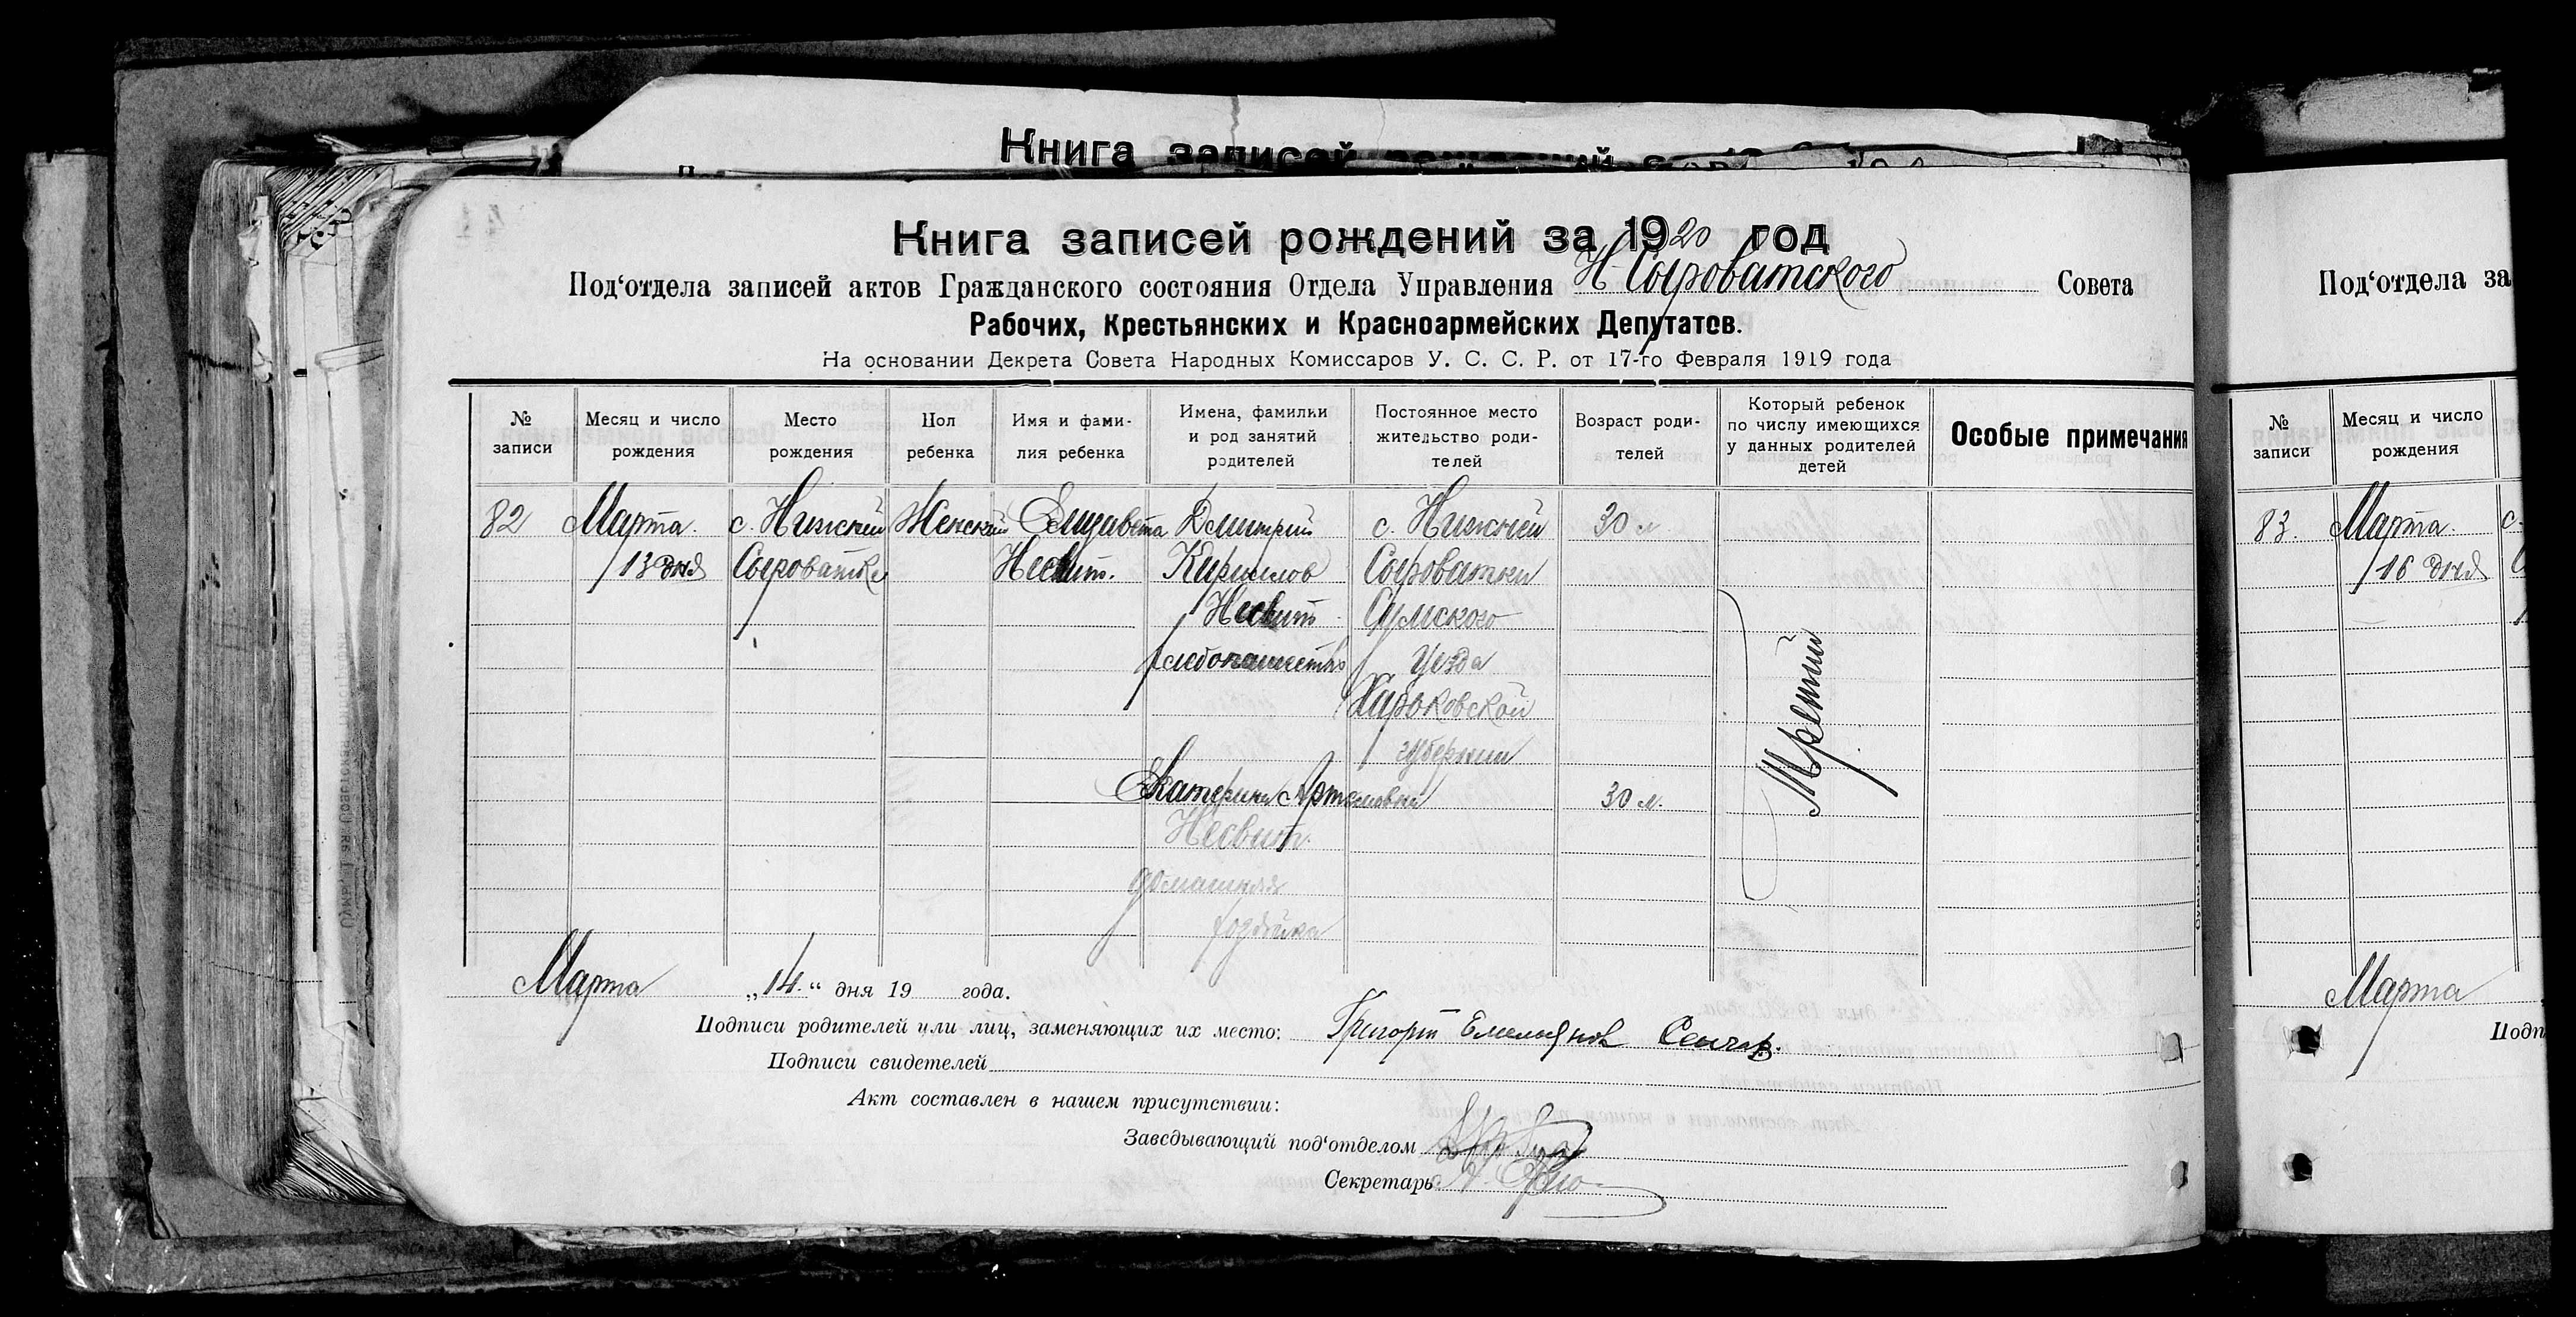 Книга записей рождений за 19
Книга записей рождений за 1920 год
Под‘отдела записей актов Гражданского состояния Отдела Управления Н-Сыроватского Совета
Рабочих, Крестьянских и Красноармейских Депутатов.
На основании Декрета Совета Народных Комиссаров У. С. С. Р. от 17-го Февраля 1919 года
№ записи
Месяц и число рождения
Место рождения
Пол ребенка
Имя и фами-
лия ребенка
Имена, фамилии
и род занятий
родителей
Постоянное место
жительство роди-
телей
Возраст роди-
телей
Который ребенок
по числу имеющихся
у данных родителей
детей
Особые примечания
82
Марта
13 дня
с. Нижней
Сыроватке
Женский
Елизавета
Несвит.
Дмитрий
Кириллов
Несвит
хлебопашество
Екатерина Артемовна
Несвит.
домашняя
хозяйка
с. Нижней
Сыроватки
Сумского
уезда
Харьковской
губернии
30 л.
30 л.
Третий
Марта „14.“ дня 19 года.
Подписи родителей или лиц, заменяющих их место: Григорий Емельянов
Подписи свидетелей
Акт составлен в нашем присутствии:
Заведывающий под‘отделом
Секретарь
Под‘отдела за
№ записи
Месяц и число
рождения
83.
Марта.
16 дня
с.
Марта
Подп